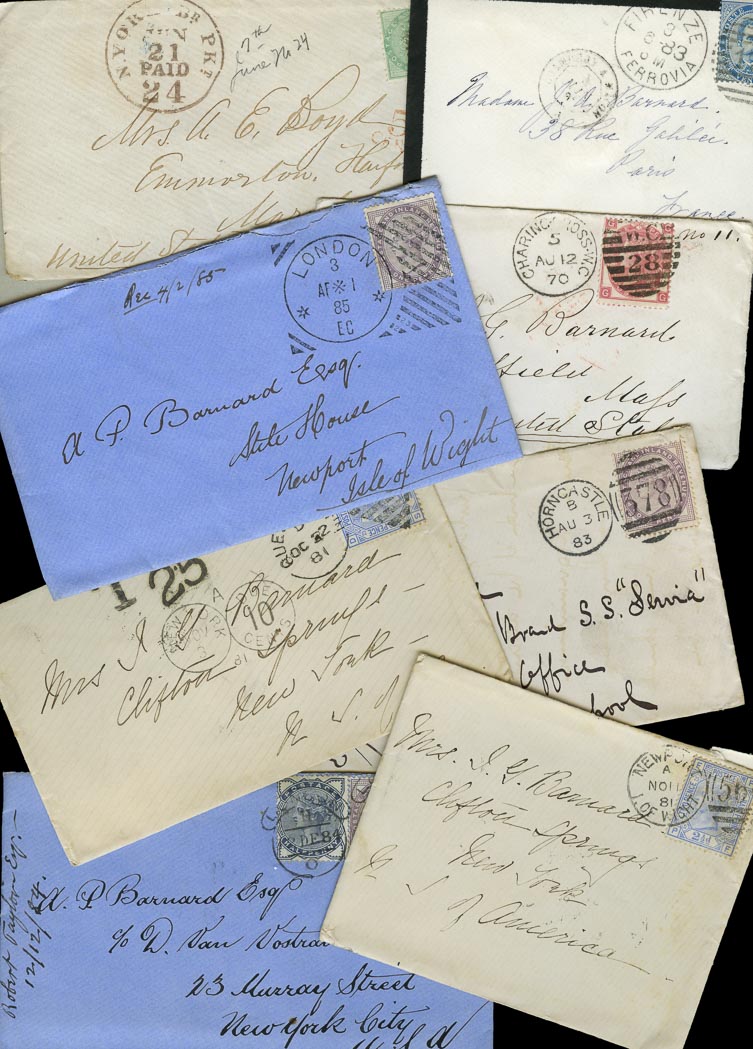 N YORK BR PKT
21
PAID
24
7th
June No 24
Mrs. A. E. Boyd
Emmorton,
United
FIRENZE
83
FERROVIA
Madame Barnard.
38 Rue Galilei.
Paris
France
LONDON
3
AP 1
85
EC
Rec 4/2/85
A P. Barnard Esq.
State House
Newport
Isle of Wight
CHARING CROSS W.C
5
AU 12
70
W.C.
28
G G
no 11.
G. Barnard
field
Mass
HORNCASTLE
B
AU 3
83
378
Board S.S. "Servia"
Office
pool
OC 22
81
T 25
NEW YORK
10
CENTS
81
Mrs I G Barnard
Clifton Springs
New York
NEWPORT
A
NO 11
81
I. OF WIGHT
156
2½d
Mrs. I. G. Barnard
Clifton Springs
New York
U S of America
DE 84
Robert Taylor Esq.
12/12/84.
A. P Barnard Esq
c/o D. Van Nostran
23 Murray Street
New York City
U.S.A